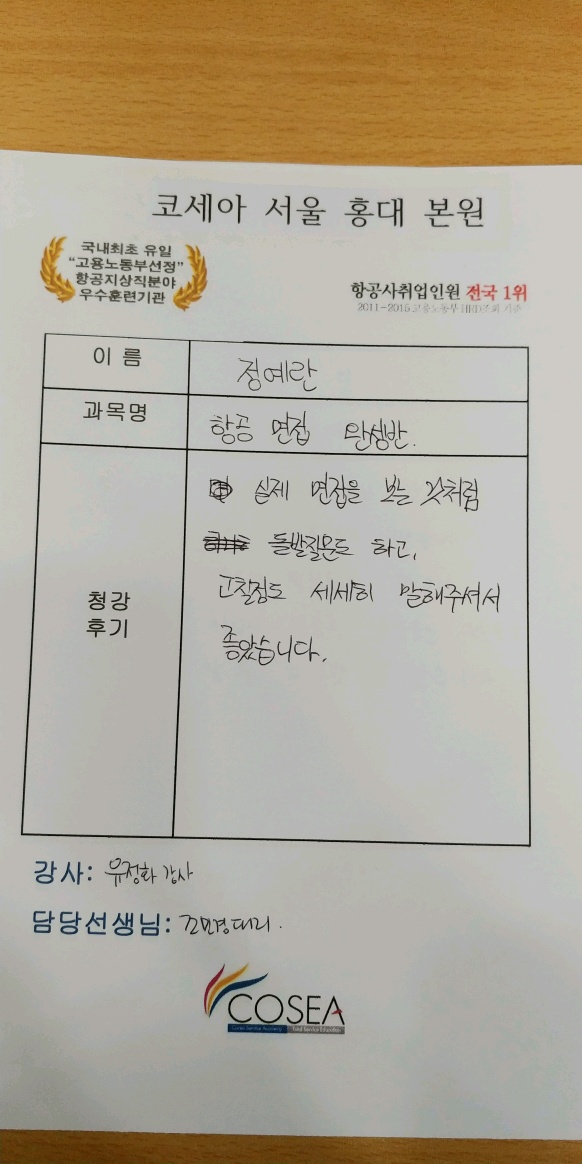 코세아 서울 홍대 본원
국내최초 유일
"고용노동부선정"
항공지상직분야
우수훈련기관
항공사취업인원 전국 1위
2011~2015 고용노동부 HRD조회 기준
이 름
정예란
과목명
항공 면접 완성반.
청강
후기
실제 면접을 보는 것처럼
돌발질문도 하고,
고칠점도 세세히 말해주셔서
좋았습니다.
강사: 유정화 강사
담당선생님: 조민경대리.
COSEA
Korea Service Academy Total Service Education